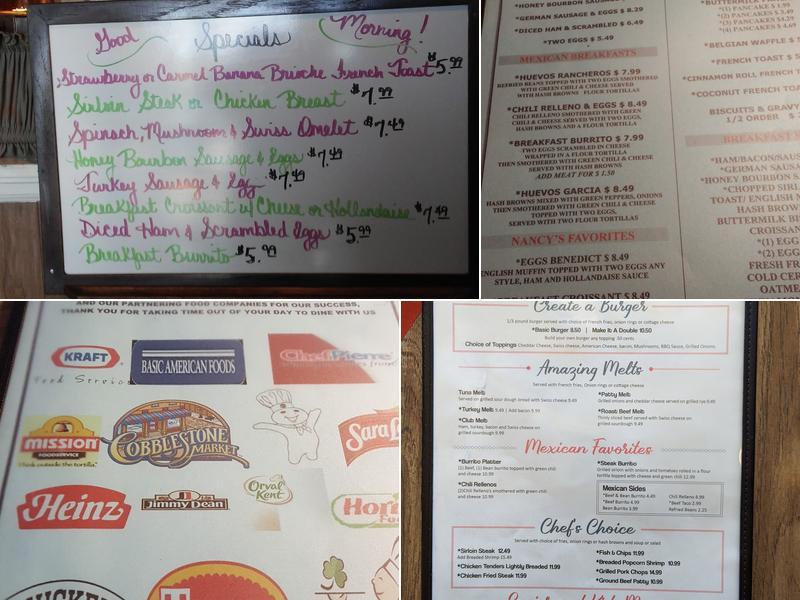 Good Specials Morning!
Strawberry or Carmel Banana Brioche French Toast $5.99
Sirloin Steak or Chicken Breast $7.99
Spinach, Mushroom & Swiss Omelet $7.49
Honey Bourbon Sausage & Eggs $7.49
Turkey Sausage & Egg $7.49
Breakfast Croissant w/ Cheese or Hollandaise $7.49
Diced Ham & Scrambled Eggs $5.99
Breakfast Burrito $5.99
*HONEY BOURBON
*GERMAN SAUSAGE & EGGS $ 8.29
*DICED HAM & SCRAMBLED $ 6.49
*TWO EGGS $ 5.49
MEXICAN BREAKFASTS
*HUEVOS RANCHEROS $ 7.99
REFRIED BEANS TOPPED WITH TWO EGGS SMOTHERED
WITH GREEN CHILI & CHEESE SERVED
WITH HASH BROWNS FLOUR TORTILLAS
*CHILI RELLENO & EGGS $ 8.49
CHILI RELLENO SMOTHERED WITH GREEN
CHILI & CHEESE SERVED WITH TWO EGGS,
HASH BROWNS AND A FLOUR TORTILLA
*BREAKFAST BURRITO $ 7.99
TWO EGGS SCRAMBLED IN CHEESE
WRAPPED IN A FLOUR TORTILLA
THEN SMOTHERED WITH GREEN CHILI & CHEESE
SERVED WITH HASH BROWNS
ADD MEAT FOR $ 1.50
*HUEVOS GARCIA $ 8.49
HASH BROWNS MIXED WITH GREEN PEPPERS, ONIONS
THEN SMOTHERED WITH GREEN CHILI & CHEESE
TOPPED WITH TWO EGGS,
SERVED WITH TWO FLOUR TORTILLAS
NANCY'S FAVORITES
*EGGS BENEDICT $ 8.49
ENGLISH MUFFIN TOPPED WITH TWO EGGS ANY
STYLE, HAM AND HOLLANDAISE SAUCE
BREAKFAST CROISSANT $ 8.49
*BUTTERMILK
(1) PANCAKE $ 1.99
(2) PANCAKES $
(3) PANCAKES $4.29
(4) PANCAKES $ 4.69
*BELGIAN WAFFLE $
*FRENCH TOAST $
*CINNAMON ROLL FRENCH T
*COCONUT FRENCH TO
BISCUITS & GRAVY
1/2 ORDER $
BREAKFAST S
*HAM/BACON/SAUS
*GERMAN SAUSA
*HONEY BOURBON S
*CHOPPED SIRL
TOAST/ ENGLISH
HASH BROW
BUTTERMILK BI
CROISSAN
*(1) EGG
*(2) EGG
FRESH FR
COLD CER
OATME
AND OUR PARTNERING FOOD COMPANIES FOR OUR SUCCESS,
THANK YOU FOR TAKING TIME OUT OF YOUR DAY TO DINE WITH US
KRAFT
Food Service
BASIC AMERICAN FOODS
ChefPierre
MISSION
FOODSERVICE
Think outside the tortilla.
COBBLESTONE
MARKET
Sara L
Heinz
Jimmy Dean
Orval
Kent
Horm
Foo
Create a Burger
1/3 pound burger served with choice of french fries, onion rings or cottage cheese
*Basic Burger 8.50 | Make It A Double 10.50
Build your own burger any topping .50 cents
Choice of Toppings Cheddar Cheese, Swiss cheese, American Cheese, bacon, Mushrooms, BBQ Sauce, Grilled Onions
Amazing Melts
Served with French fries, Onion rings or cottage cheese
Tuna Melt
Served on grilled sour dough bread with Swiss cheese 9.49
*Turkey Melt 9.49 | Add bacon 9.99
*Club Melt
Ham, turkey, bacon and Swiss cheese on
grilled sourdough 9.99
*Patty Melt
Grilled onions and cheddar cheese served on grilled rye 9.49
*Roast Beef Melt
Thinly sliced beef served with Swiss cheese on
grilled sourdough 9.49
Mexican Favorites
*Burrito Platter
(1) Beef, (1) Bean Burrito topped with green chili
and cheese 10.99
*Chili Rellenos
(2)Chili Relleno's smothered with green chili
and cheese 10.99
*Steak Burrito
Grilled sirloin with onions and tomatoes rolled in a flour
tortilla topped with cheese and green chili 12.99
Mexican Sides
*Beef & Bean Burrito 4.49
*Beef Burrito 4.99
Bean Burrito 3.99
Chili Relleno 4.99
*Beef Taco 2.99
Refried Beans 2.25
Chef's Choice
Served with choice of fries, onion rings or hash browns and soup or salad
*Sirloin Steak 12.49
Add Breaded Shrimp 15.49
*Chicken Tenders Lightly Breaded 11.99
*Chicken Fried Steak 11.99
*Fish & Chips 11.99
*Breaded Popcorn Shrimp 10.99
*Grilled Pork Chops 14.99
*Ground Beef Patty 10.99